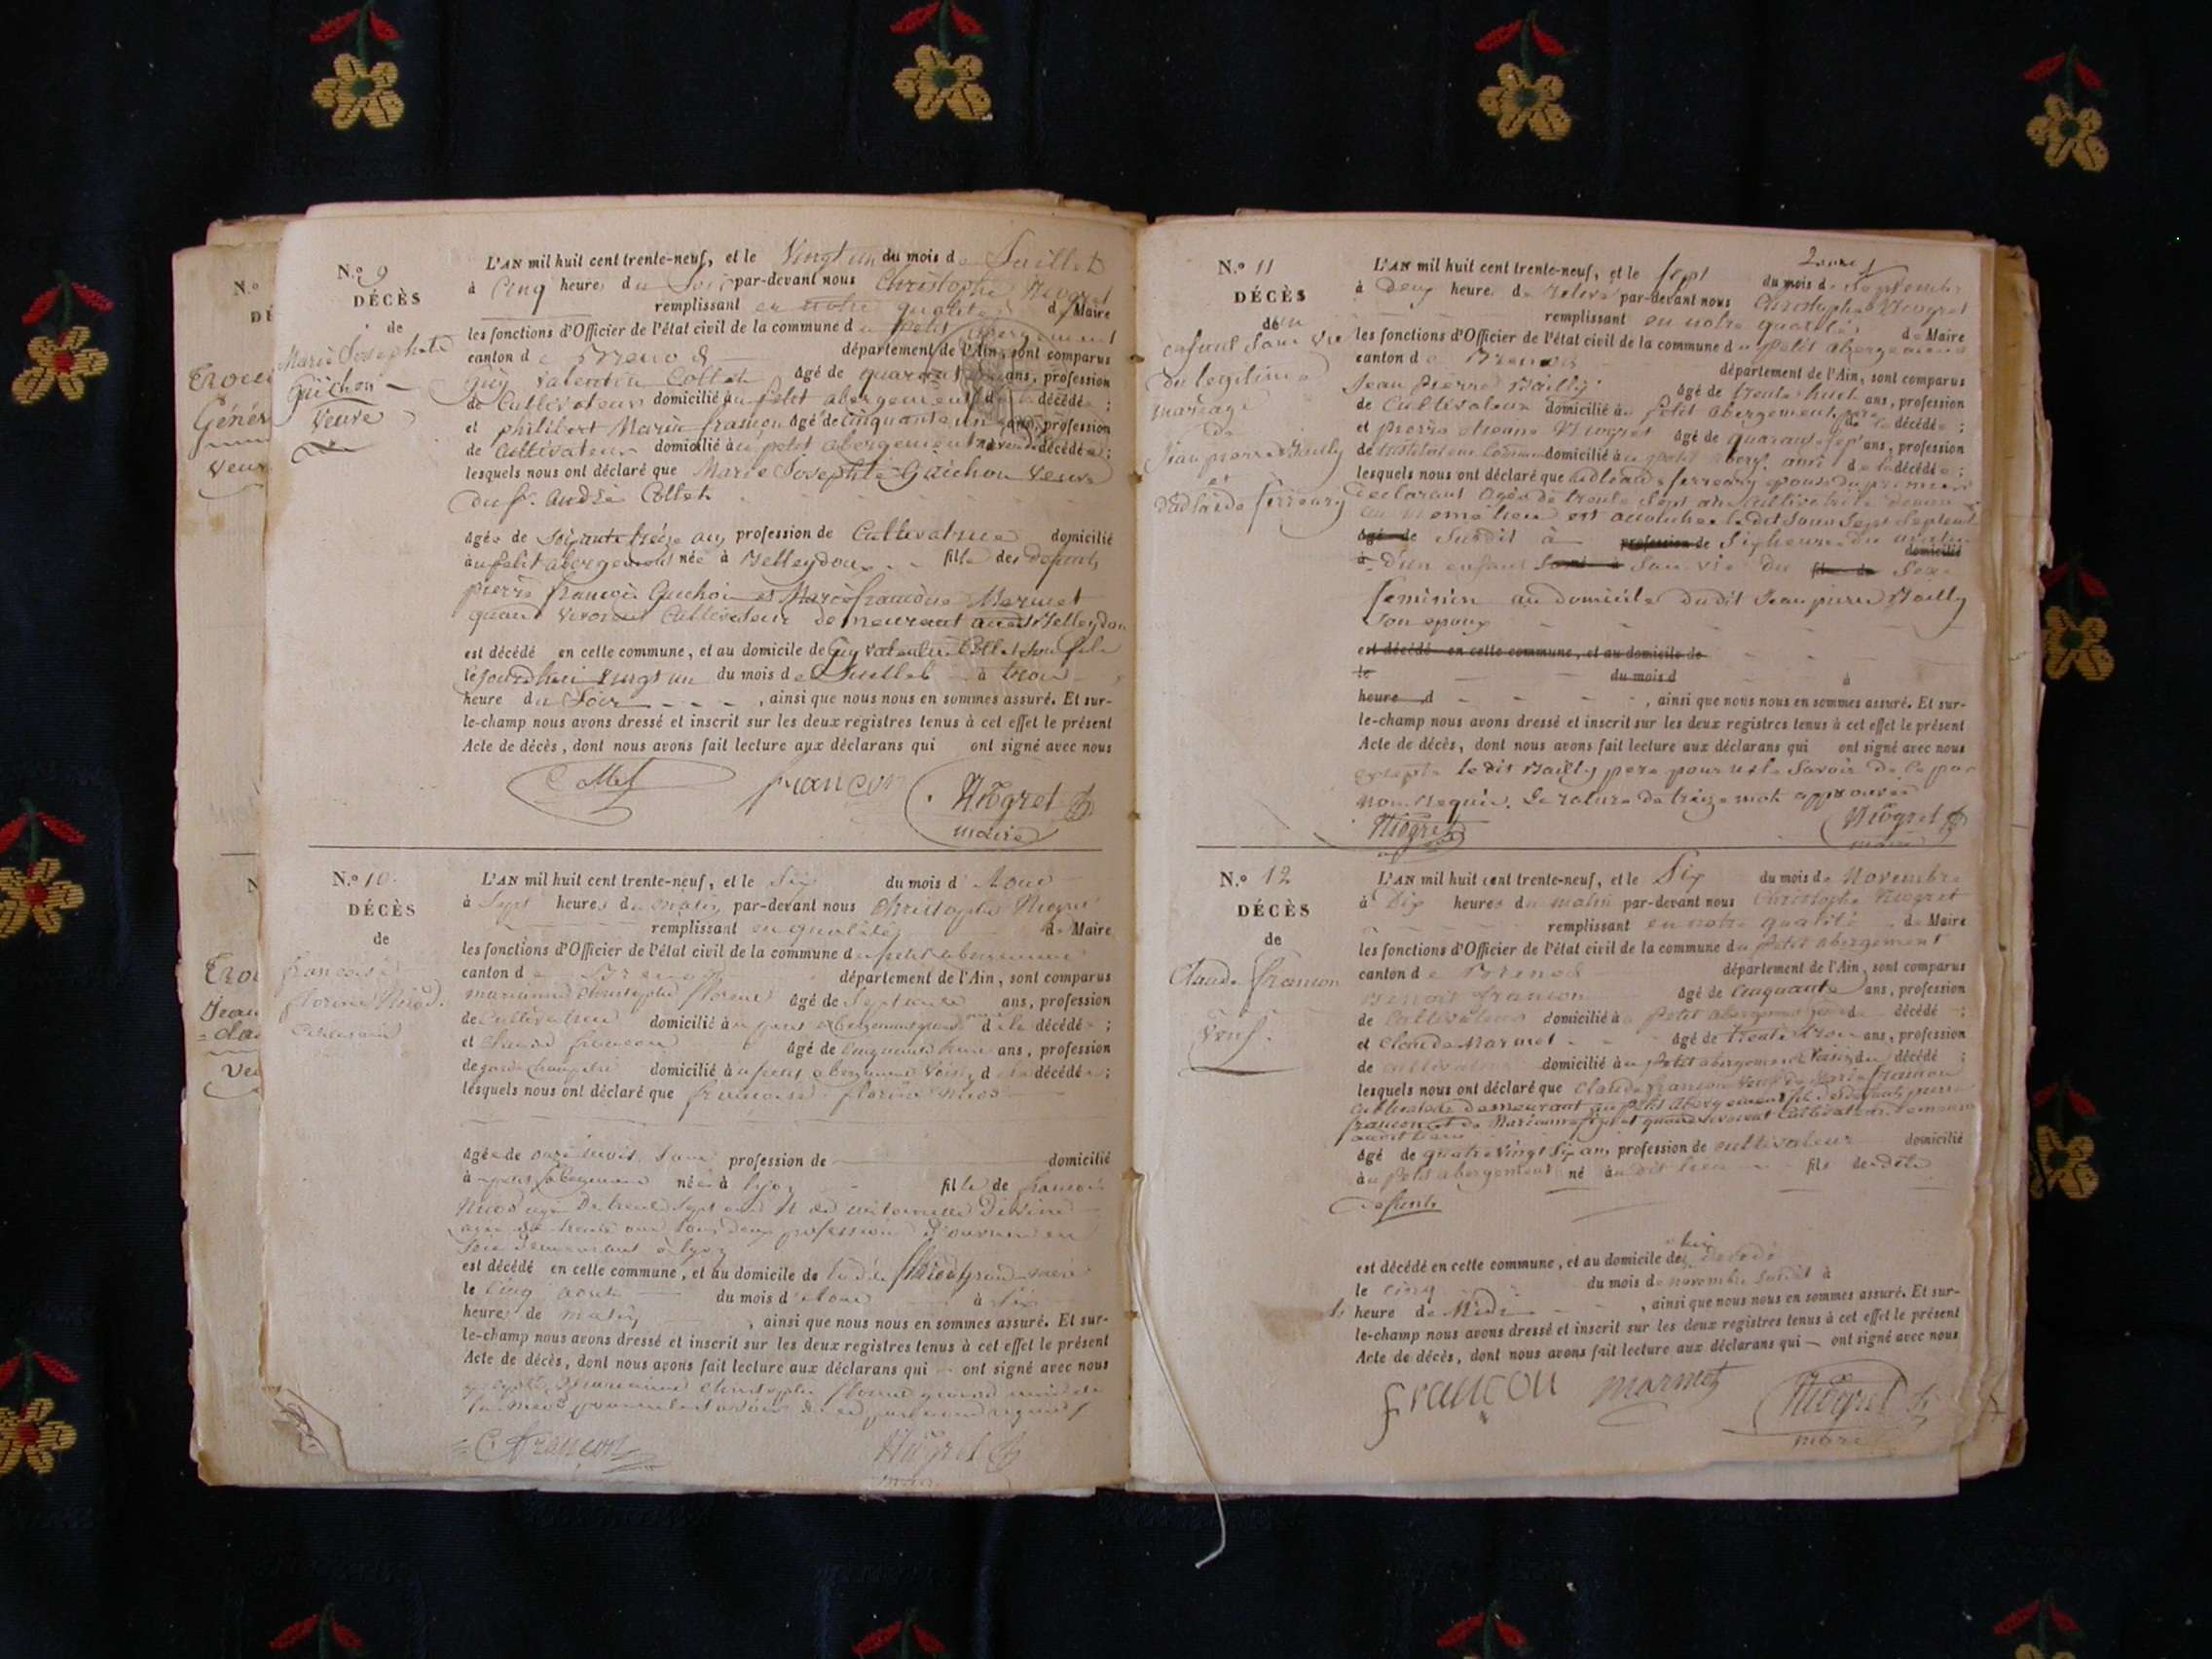 N.º 9
DÉCÈS
de
Marie Josephte
Guichon
Veuve
L'AN mil huit cent trente-neuf, et le Vingt un du mois de Juillet
à Cinq heures du Soir par-devant nous Christophe Niogret
remplissant en notre qualité de Maire
les fonctions d'Officier de l'état civil de la commune du petit abergement
canton de Brenod département de l'Ain, sont comparus
Guy Valentin Collet âgé de quarante ans, profession
de Cultivateur domicilié au petit abergement décédée ;
et philibert Marie françon âgé de cinquante un ans, profession
de Cultivateur domicilié au petit abergement décédée ;
lesquels nous ont déclaré que Marie Josephte Guichon Veuve
du f. André Collet
âgée de Soixante treize ans profession de Cultivatrice domicilié
au petit abergement née à Belleydoux fille des défunts
pierre françois Guichon et Marie françoise Mermet
quand vivoient Cultivateurs demeurant audit Belleydoux
est décédé en cette commune, et au domicile de Guy Valentin Collet son fils
le jourd'hui vingt un du mois de Juillet à trois
heure du Soir , ainsi que nous nous en sommes assuré. Et sur-
le-champ nous avons dressé et inscrit sur les deux registres tenus à cet effet le présent
Acte de décès, dont nous avons fait lecture aux déclarans qui ont signé avec nous
Collet françon Niogret
maire
N.º 10
DÉCÈS
de
françoise
florine Niod
L'AN mil huit cent trente-neuf, et le Six du mois d'Aout
à Sept heures du matin par-devant nous Christophe Niogret
remplissant en qualité de Maire
les fonctions d'Officier de l'état civil de la commune du petit abergement
canton de Brenod département de l'Ain, sont comparus
marianne Christophe florine âgé de Septante ans, profession
de Cultivatrice domicilié au petit abergement grand mère de la décédée ;
et Claude françon âgé de cinquante ans, profession
de garde champêtre domicilié au petit abergement voisin de la décédée ;
lesquels nous ont déclaré que françoise florine Niod
âgée de onze mois Sans profession de domicilié
à petit abergement née à lyon fille de françois
Niod agé de trente Sept ans et de
agée de trente ans tous deux profession d'ouvrier en
Soie demeurant à lyon
est décédé en cette commune, et au domicile de la dite grand mère
le Cinq aout du mois d'Aout à Six
heures de matin , ainsi que nous nous en sommes assuré. Et sur-
le-champ nous avons dressé et inscrit sur les deux registres tenus à cet effet le présent
Acte de décès, dont nous avons fait lecture aux déclarans qui ont signé avec nous
excepté marianne Christophe florine grand mère de
C françon Niogret
maire
N.º 11
DÉCÈS
de un
enfant Sans vie
du legitime
mariage
de
Jean pierre Mailly
et
d'adelaide ferreury
L'AN mil huit cent trente-neuf, et le Sept du mois de Septembre
à Deux heures de relevé par-devant nous Christophe Niogret
remplissant en notre qualité de Maire
les fonctions d'Officier de l'état civil de la commune du petit abergement
canton de Brenod département de l'Ain, sont comparus
Jean pierre Mailly âgé de trente huit ans, profession
de Cultivateur domicilié au petit abergement père de la décédée ;
et pierre étienne Niogret âgé de quarante Sept ans, profession
de instituteur communal domicilié au petit aberg. ami de la décédée ;
lesquels nous ont déclaré que adelaide ferreury epouse du premier
declarant agée de trente Sept ans Cultivatrice demeu
au même lieu est accouchée le dit jour Sept Septemb
âgé de Susdit à profession de Six heures du matin domicilié
à d'un enfant Sans vie du fils de Sexe
feminin au domicile dudit Jean pierre Mailly
Son epoux
est décédé en cette commune, et au domicile de
le du mois d à
heure d , ainsi que nous nous en sommes assuré. Et sur-
le-champ nous avons dressé et inscrit sur les deux registres tenus à cet effet le présent
Acte de décès, dont nous avons fait lecture aux déclarans qui ont signé avec nous
excepté le dit Mailly pere pour ne le Savoir de ce par
nous Requis. Le rature de treize mots approuvée
Niogret Niogret
maire
N.º 12
DÉCÈS
de
Claude françon
Veuf
L'AN mil huit cent trente-neuf, et le Six du mois de Novembre
à Dix heures du matin par-devant nous Christophe Niogret
remplissant en notre qualité de Maire
les fonctions d'Officier de l'état civil de la commune du Petit abergement
canton de Brenod département de l'Ain, sont comparus
Benoit françon âgé de Cinquante ans, profession
de Cultivateur domicilié à Petit abergement d décédé ;
et Claude Marmet âgé de trente trois ans, profession
de cultivateur domicilié au Petit abergement Voisin du décédé ;
lesquels nous ont déclaré que Claude françon Veuf de Marie françon
Cultivateur demeurant au petit abergement fils des defunts pierre
françon et de Marianne quand vivoient Cultivateurs demeurant
audit lieu
âgé de quatre Vingt Six ans profession de cultivateur domicilié
au Petit abergement né audit lieu fils des dits
defunts
est décédé en cette commune, et au domicile de lui decedé
le cinq du mois de novembre Susdit à
heure de Midi , ainsi que nous nous en sommes assuré. Et sur-
le-champ nous avons dressé et inscrit sur les deux registres tenus à cet effet le présent
Acte de décès, dont nous avons fait lecture aux déclarans qui ont signé avec nous
françon marmet Niogret
maire